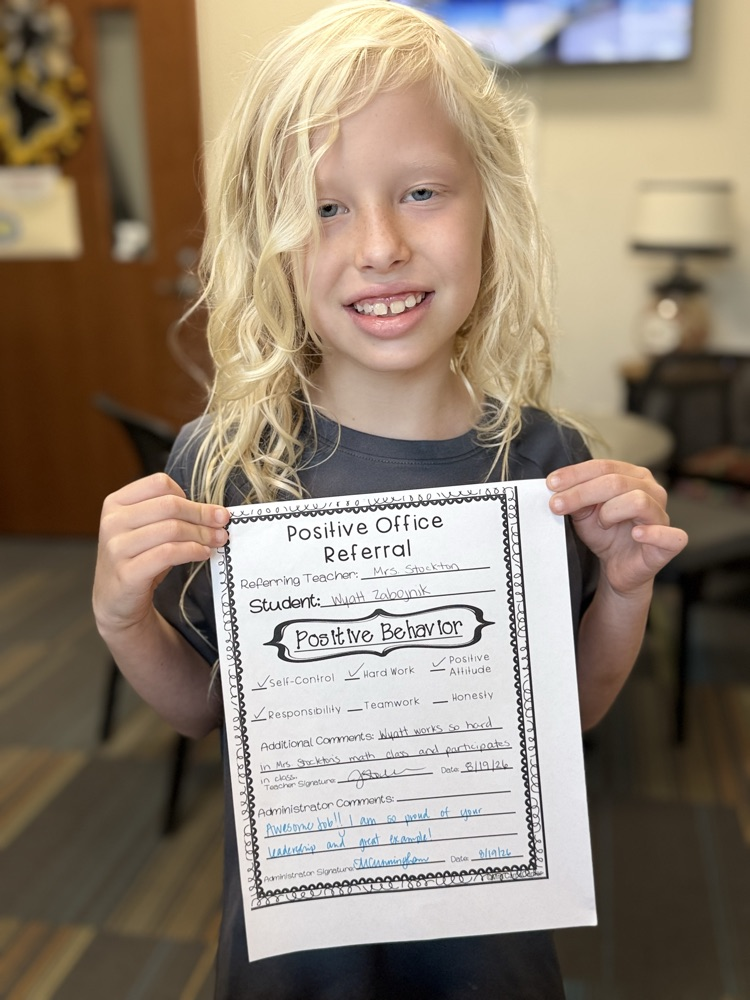 Positive Office
Referral
Referring Teacher: Mrs. Stockton
Student: Wyatt Zabojnik
Positive Behavior
✓ Self-Control ✓ Hard Work ✓ Positive Attitude
✓ Responsibility _ Teamwork _ Honesty
Additional Comments: Wyatt works so hard
in Mrs. Stockton's math class and participates
in class.
Teacher Signature: Date: 8/19/26
Administrator Comments:
Awesome Job!! I am so proud of your
leadership and great example!
Administrator Signature: EMCunningham Date: 8/19/26